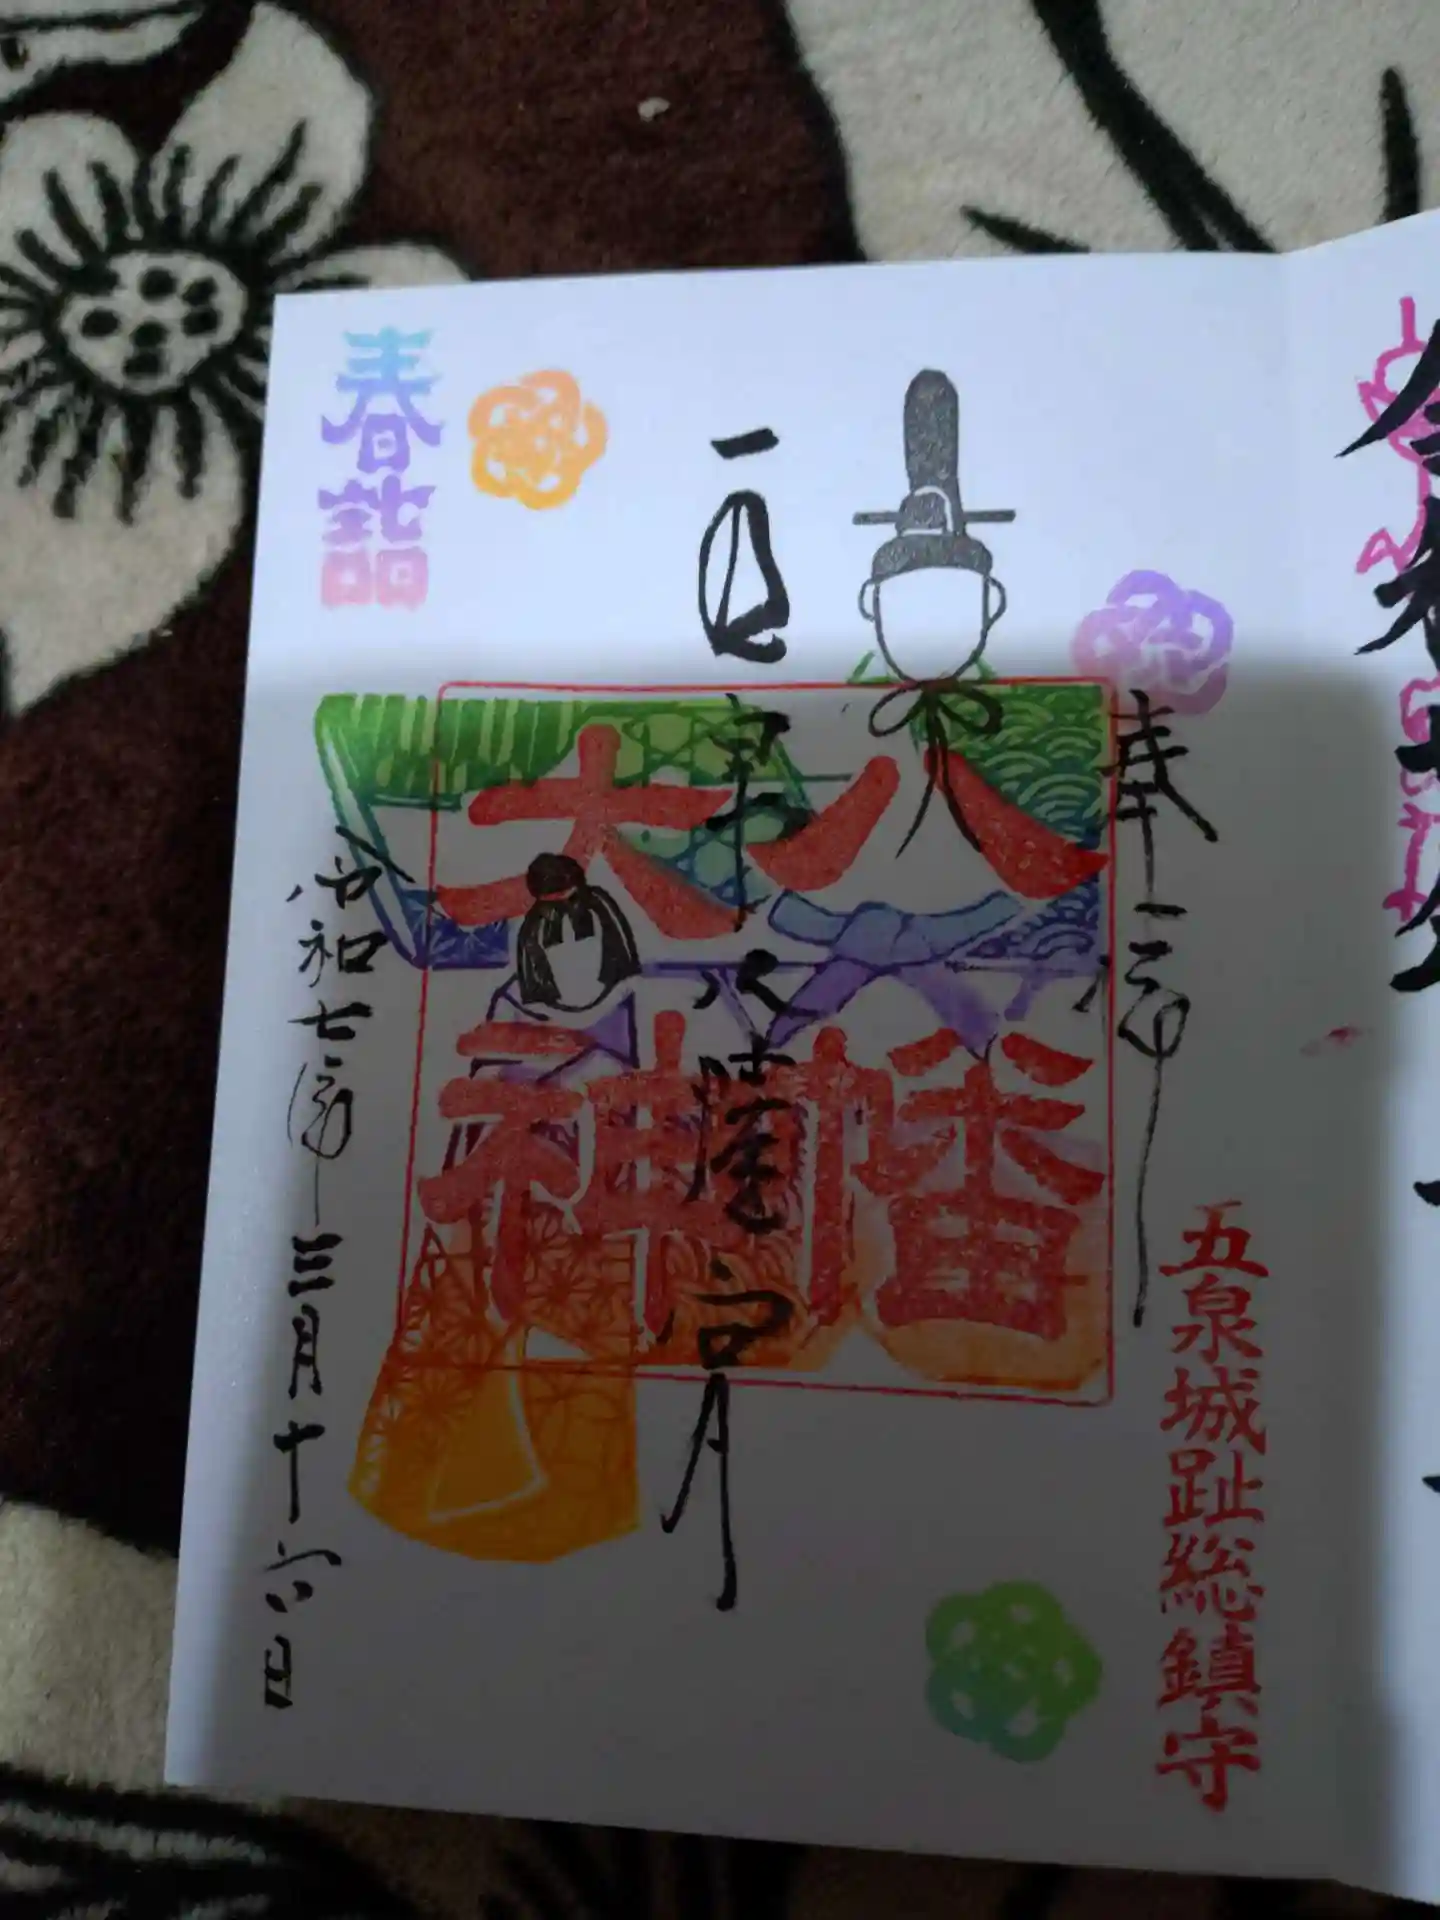 奉拝
五泉城趾総鎮守
八幡
大神
八幡宮
春詣
令和七年三月十六日